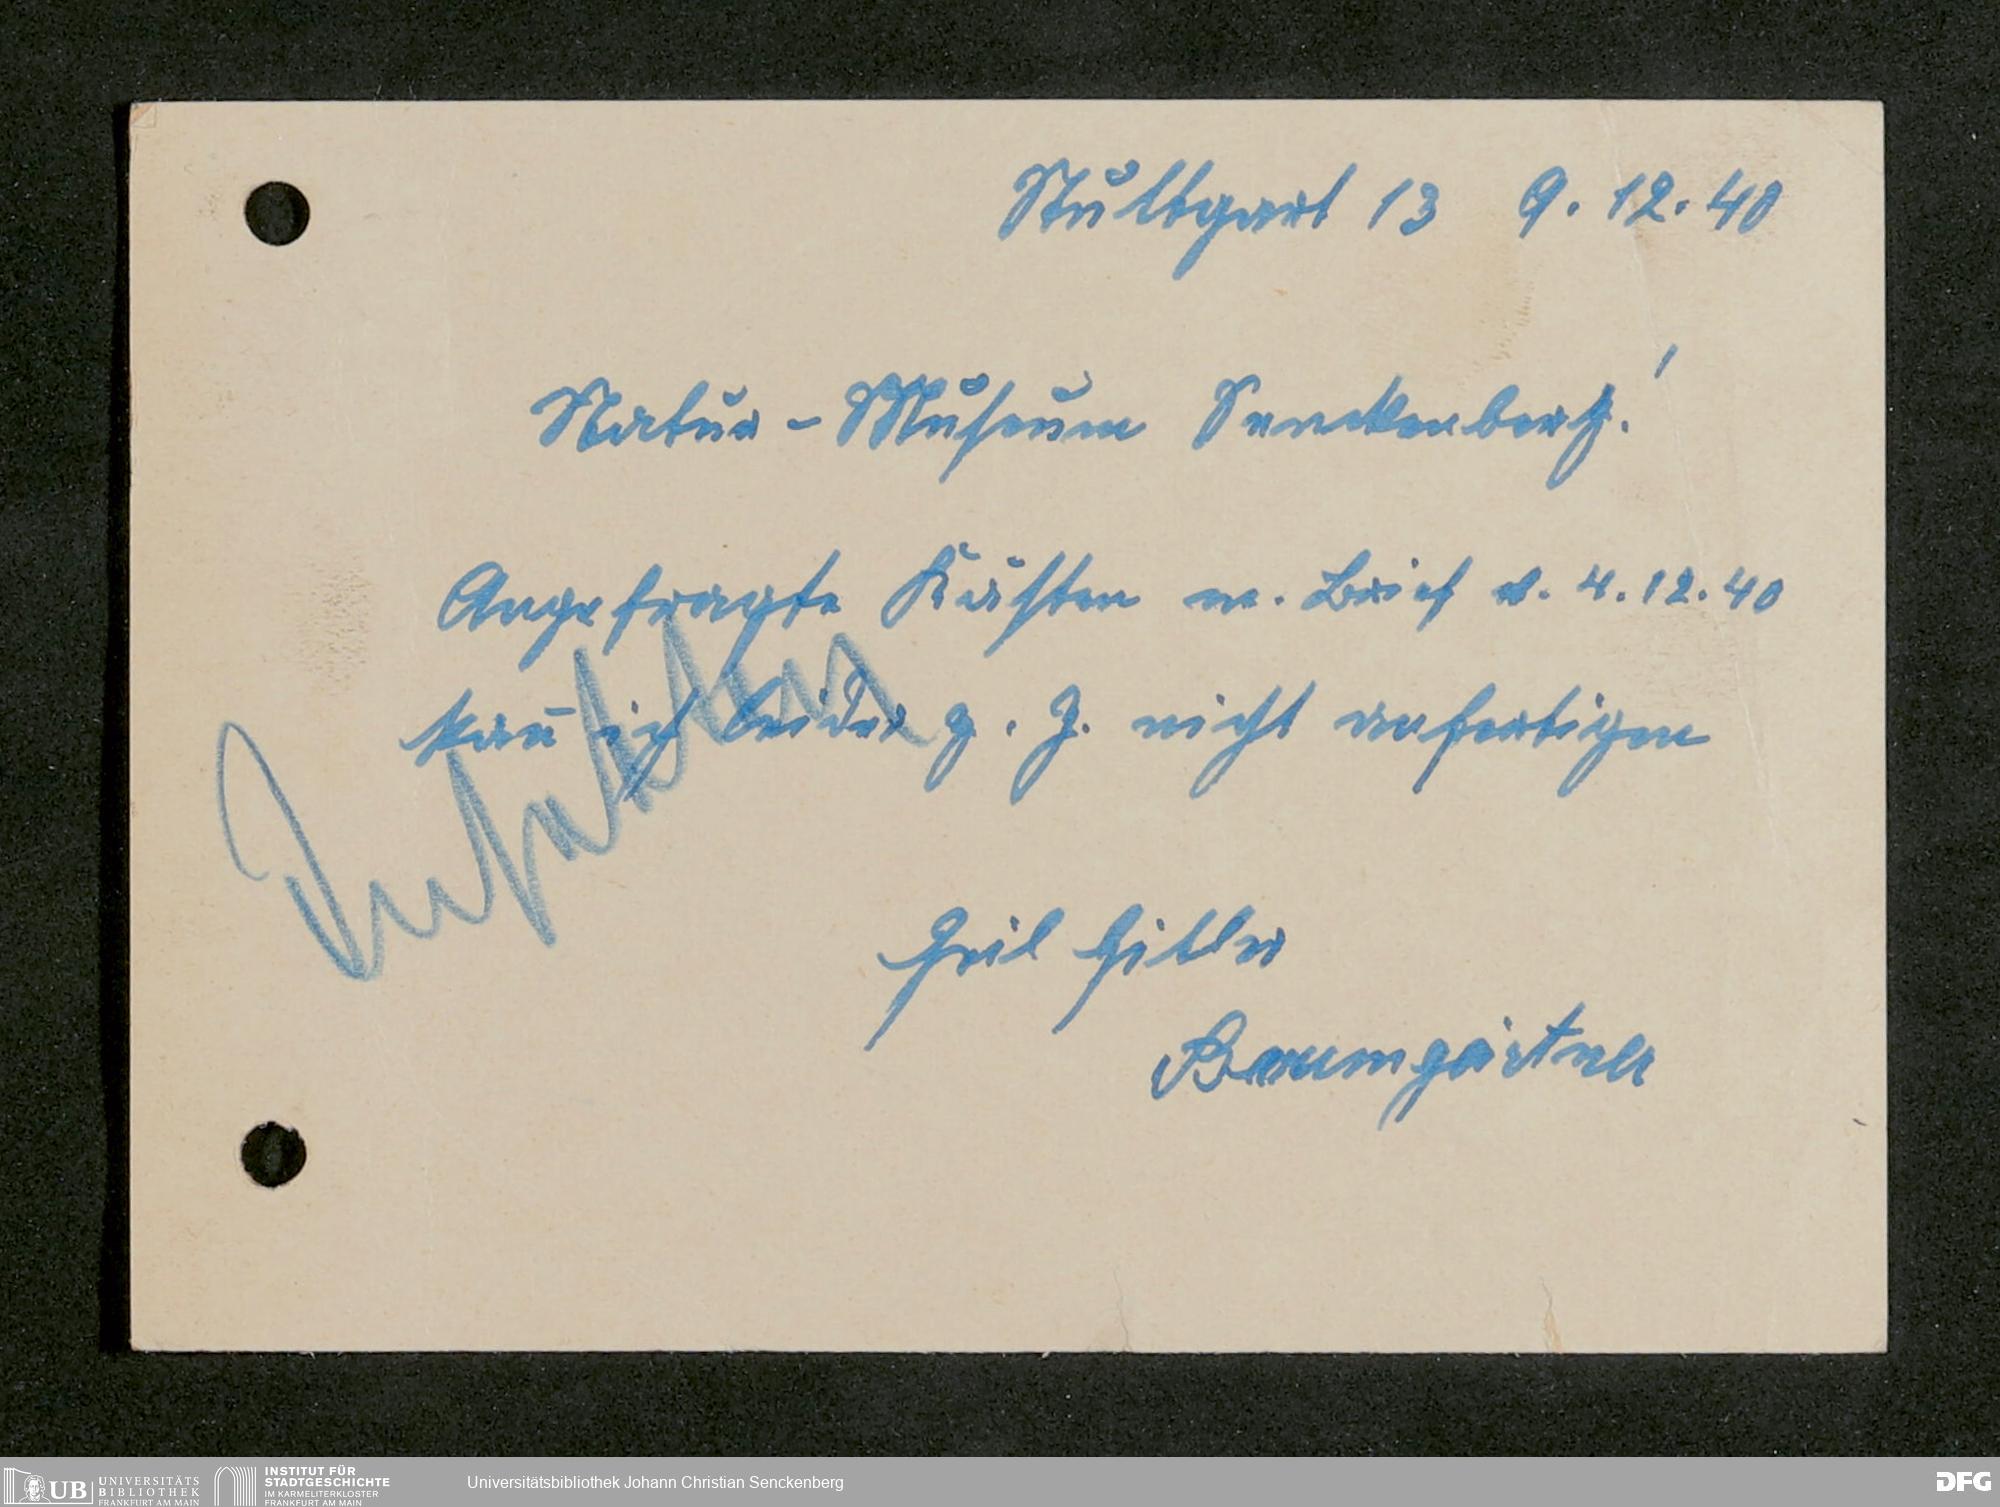 Stuttgart 13 9.12.40
Natur-Museum Senckenberg.!
Angefragte Kästen m. Brief v. 4.12.40
kan̄ ich leider z. Z. nicht anfertigen
Heil Hitler
Baumgärtner
UB UNIVERSITÄTS
BIBLIOTHEK
FRANKFURT AM MAIN
INSTITUT FÜR
STADTGESCHICHTE
IM KARMELITERKLOSTER
FRANKFURT AM MAIN
Universitätsbibliothek Johann Christian Senckenberg
DFG